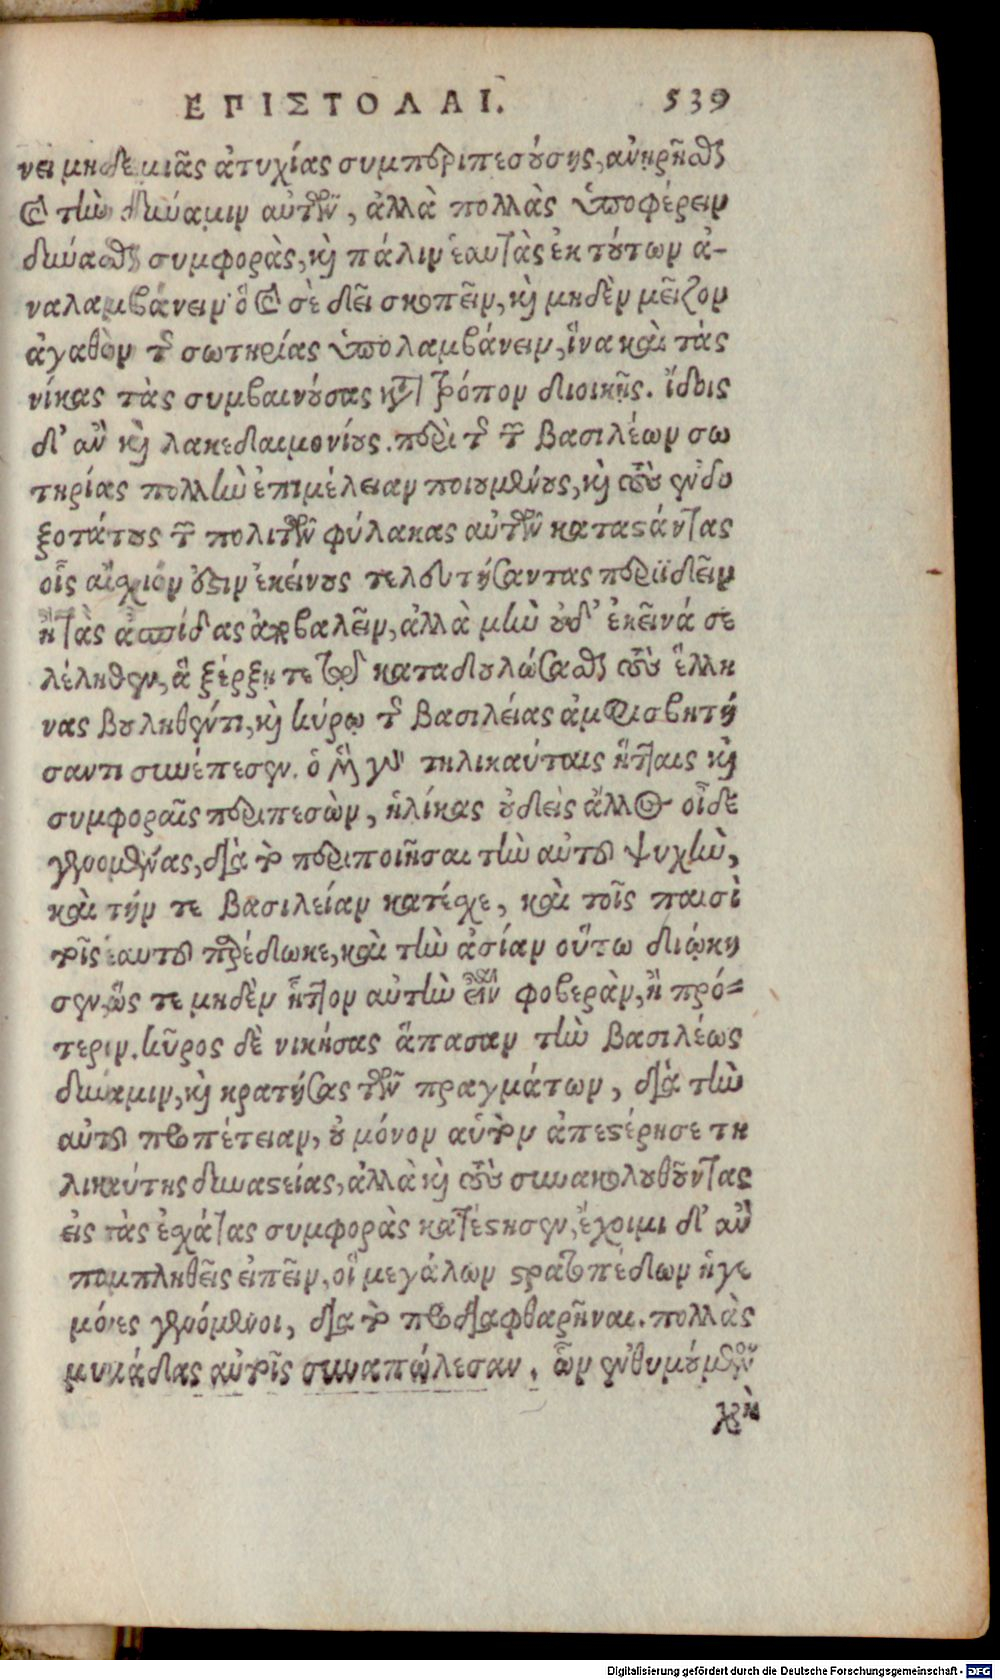 ΕΠΙΣΤΟΛΑΙ. 539
νει μηδεμιᾶς ἀτυχίας συμπεριπεσούσης, ἀνῃρῆσθαι
καὶ τὴν δύναμιν αὐτῶν, ἀλλὰ πολλὰς ὑποφέρειν
δύνασθαι συμφορὰς, καὶ πάλιν ἑαυτὰς ἐκ τούτων ἀ-
ναλαμβάνειν· ὃ καὶ σὲ δεῖ σκοπεῖν, καὶ μηδὲν μεῖζον
ἀγαθὸν τῆς σωτηρίας ὑπολαμβάνειν, ἵνα καὶ τὰς
νίκας τὰς συμβαινούσας κατὰ τρόπον διοικῇς. ἴδοις
δ' ἂν καὶ λακεδαιμονίους περὶ τῆς τῶν βασιλέων σω
τηρίας πολλὴν ἐπιμέλειαν ποιουμένους, καὶ τοὺς ἐνδο
ξοτάτους τῶν πολιτῶν φύλακας αὐτῶν καταστάντας
οἷς αἴσχιόν ἐστιν ἐκείνους τελευτήσαντας περιϊδεῖν
ἢ τὰς ἀσπίδας ἀποβαλεῖν, ἀλλὰ μὴν οὐδ' ἐκεῖνά σε
λέληθεν, ἃ ξέρξῃ τε τῷ καταδουλώσασθαι τοὺς ἕλλη
νας βουληθέντι, καὶ κύρῳ τῆς βασιλείας ἀμφισβητή
σαντι συνέπεσεν. ὁ μὲν γὰρ τηλικαύταις ἥτταις καὶ
συμφοραῖς περιπεσὼν, ἡλίκας οὐδεὶς ἄλλος οἶδε
γενομένας, διὰ τὸ περιποιῆσαι τὴν αὐτοῦ ψυχὴν,
καὶ τήν τε βασιλείαν κατέσχε, καὶ τοῖς παισὶ
τοῖς ἑαυτοῦ παρέδωκε, καὶ τὴν ἀσίαν οὕτω διῴκη
σεν, ὥς τε μηδὲν ἧττον αὐτὴν εἶναι φοβερὰν, ἢ πρό-
τεριν. κῦρος δὲ νικήσας ἅπασαν τὴν βασιλέως
δύναμιν, καὶ κρατήσας τῶν πραγμάτων, διὰ τὴν
αὐτοῦ προπέτειαν, οὐ μόνον αὑτὸν ἀπεστέρησε τη
λικαύτης δυναστείας, ἀλλὰ καὶ τοὺς συνακολουθοῦντας
εἰς τὰς ἐσχάτας συμφορὰς κατέστησεν, ἔχοιμι δ' ἂν
παμπληθεῖς εἰπεῖν, οἳ μεγάλων στρατοπέδων ἡγε
μόνες γενόμενοι, διὰ τὸ προδιαφθαρῆναι. πολλὰς
μυριάδας αὐτοῖς συναπώλεσαν. ὧν ἐνθυμούμενον
χρὴ
Digitalisierung gefördert durch die Deutsche Forschungsgemeinschaft - DFG